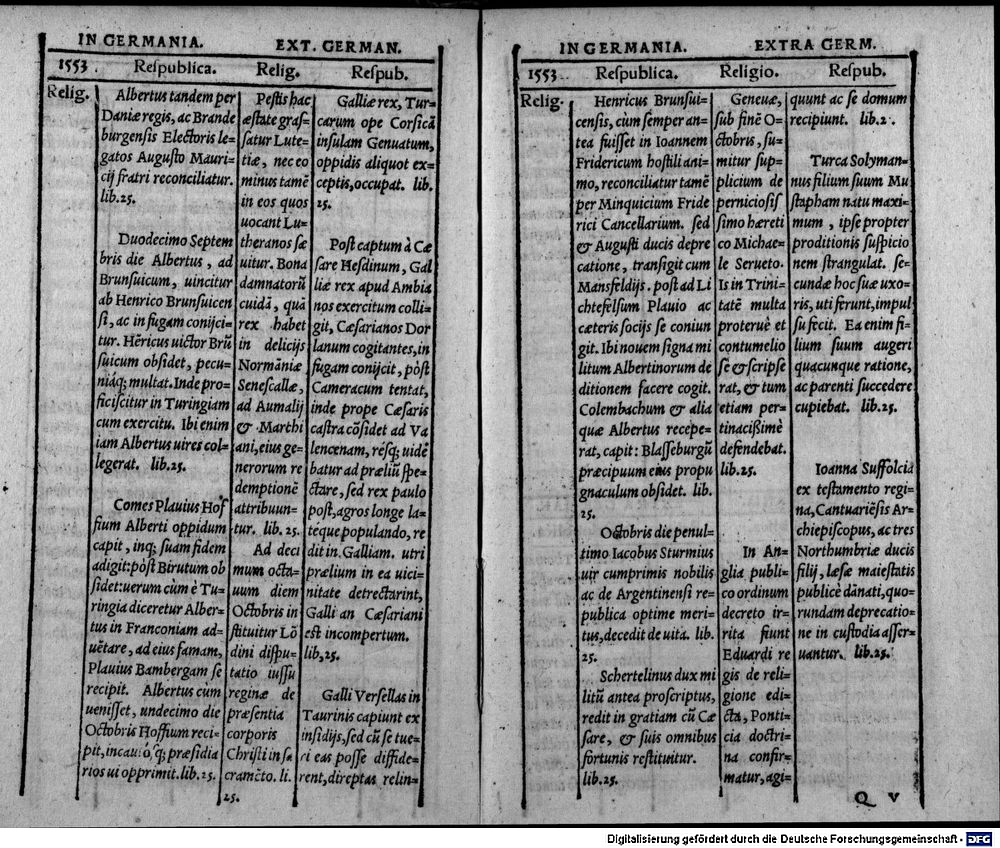 IN GERMANIA. EXT. GERMAN.
1553. Reſpublica. Relig. Reſpub.
Relig.
Albertus tandem per
Daniæ regis, ac Brande
burgenſis Electoris le-
gatos Auguſto Mauri-
cij fratri reconciliatur.
lib.25.
Duodecimo Septem
bris die Albertus, ad
Brunſuicum, uincitur
ab Henrico Brunſuicen
ſi, ac in fugam conijci-
tur. Hēricus uictor Brū
ſuicum obſidet, pecu-
niáq; multat. Inde pro-
ficiſcitur in Turingiam
cum exercitu. Ibi enim
iam Albertus uires col-
legerat. lib.25.
Comes Plauius Hof
fium Alberti oppidum
capit, inq; ſuam fidem
adigit: pòſt Birutum ob
ſidet: uerum cùm è Tu-
ringia diceretur Alber-
tus in Franconiam ad-
uētare, ad eius famam,
Plauius Bambergam ſe
recipit. Albertus cùm
ueniſſet, undecimo die
Octobris Hoffium reci-
pit, incautóſq; præſidia
rios ui opprimit. lib.25.
Peſtis hac
æſtate graſ-
ſatur Lute-
tiæ, nec eo
minus tamē
in eos quos
uocant Lu-
theranos ſæ
uitur. Bona
damnatorū
cuidā, quā
rex habet
in delicijs
Normāniæ
Seneſcallæ,
ad Aumalij
& Marthi
ani, eius ge-
nerorum re
demptionē
attribuun-
tur. lib. 25.
Ad deci
mum octa-
uum diem
Octobris in
ſtituitur Lō
dini diſpu-
tatio iuſſu
reginæ de
præſentia
corporis
Chriſti in ſa
cramēto. li.
25.
Galliæ rex, Tur-
carum ope Corſicā
inſulam Genuatum,
oppidis aliquot ex-
ceptis, occupat. lib.
25.
Poſt captum à Cæ
ſare Heſdinum, Gal
liæ rex apud Ambia
nos exercitum colli-
git, Cæſarianos Dor
lanum cogitantes, in
fugam conijcit, pòſt
Cameracum tentat,
inde prope Cæſaris
caſtra cōſidet ad Va
lencenam, réſq; uidē
batur ad præliū ſpe-
ctare, ſed rex paulo
pòſt, agros longe la-
téque populando, re
dit in Galliam. utri
prælium in ea uici-
nitate detrectarint,
Galli an Cæſariani
eſt incompertum.
lib, 25.
Galli Verſellas in
Taurinis capiunt ex
inſidijs, ſed cū ſe tue-
ri eas poſſe diffide-
rent, direptas relin-
IN GERMANIA. EXTRA GERM.
1553. Reſpublica. Religio. Reſpub.
Relig.
Henricus Brunſui-
cenſis, cùm ſemper an-
tea fuiſſet in Ioannem
Fridericum hoſtili ani-
mo, reconciliatur tamē
per Minquicium Fride
rici Cancellarium. ſed
& Auguſti ducis depre
catione, tranſigit cum
Mansfeldijs. poſt ad Li
chtefelſum Plauio ac
cæteris ſocijs ſe coniun
git. Ibi nouem ſigna mi
litum Albertinorum de
ditionem facere cogit.
Colembachum & alia
quæ Albertus recepe-
rat, capit: Blaſſeburgū
præcipuum eius propu
gnaculum obſidet. lib.
25.
Octobris die penul-
timo Iacobus Sturmius
uir cumprimis nobilis
ac de Argentinenſi re-
publica optime meri-
tus, decedit de uita. lib.
25.
Schertelinus dux mi
litū antea proſcriptus,
redit in gratiam cū Cæ
ſare, & ſuis omnibus
fortunis reſtituitur.
lib.25.
Geneuæ,
ſub finē O-
ctobris, ſu-
mitur ſup-
plicium de
pernicioſiſ
ſimo hæreti
co Michae-
le Serueto.
Is in Trini-
tatē multa
proteruè et
contumelio
ſe & ſcripſe
rat, & tum
etiam per-
tinaciſſimè
defendebat.
lib.25.
In An-
glia publi-
co ordinum
decreto ir-
rita fiunt
Eduardi re
gis de reli-
gione edi-
cta, Ponti-
cia doctri-
na confir-
matur, agi-
quunt ac ſe domum
recipiunt. lib.2.
Turca Solyman-
nus filium ſuum Mu
ſtapham natu maxi-
mum, ipſe propter
proditionis ſuſpicio
nem ſtrangulat. ſe-
cundæ hoc ſuæ uxo-
ris, uti ferunt, impul
ſu fecit. Ea enim fi-
lium ſuum augeri
quacunque ratione,
ac parenti ſuccedere
cupiebat. lib.25.
Ioanna Suffolcia
ex teſtamento regi-
na, Cantuariēſis Ar-
chiepiſcopus, ac tres
Northumbriæ ducis
filij, læſæ maieſtatis
publicè dānati, quo-
rundam deprecatio-
ne in cuſtodia aſſer-
uantur. lib.25.
Q V
Digitalisierung gefördert durch die Deutsche Forschungsgemeinschaft - DFG